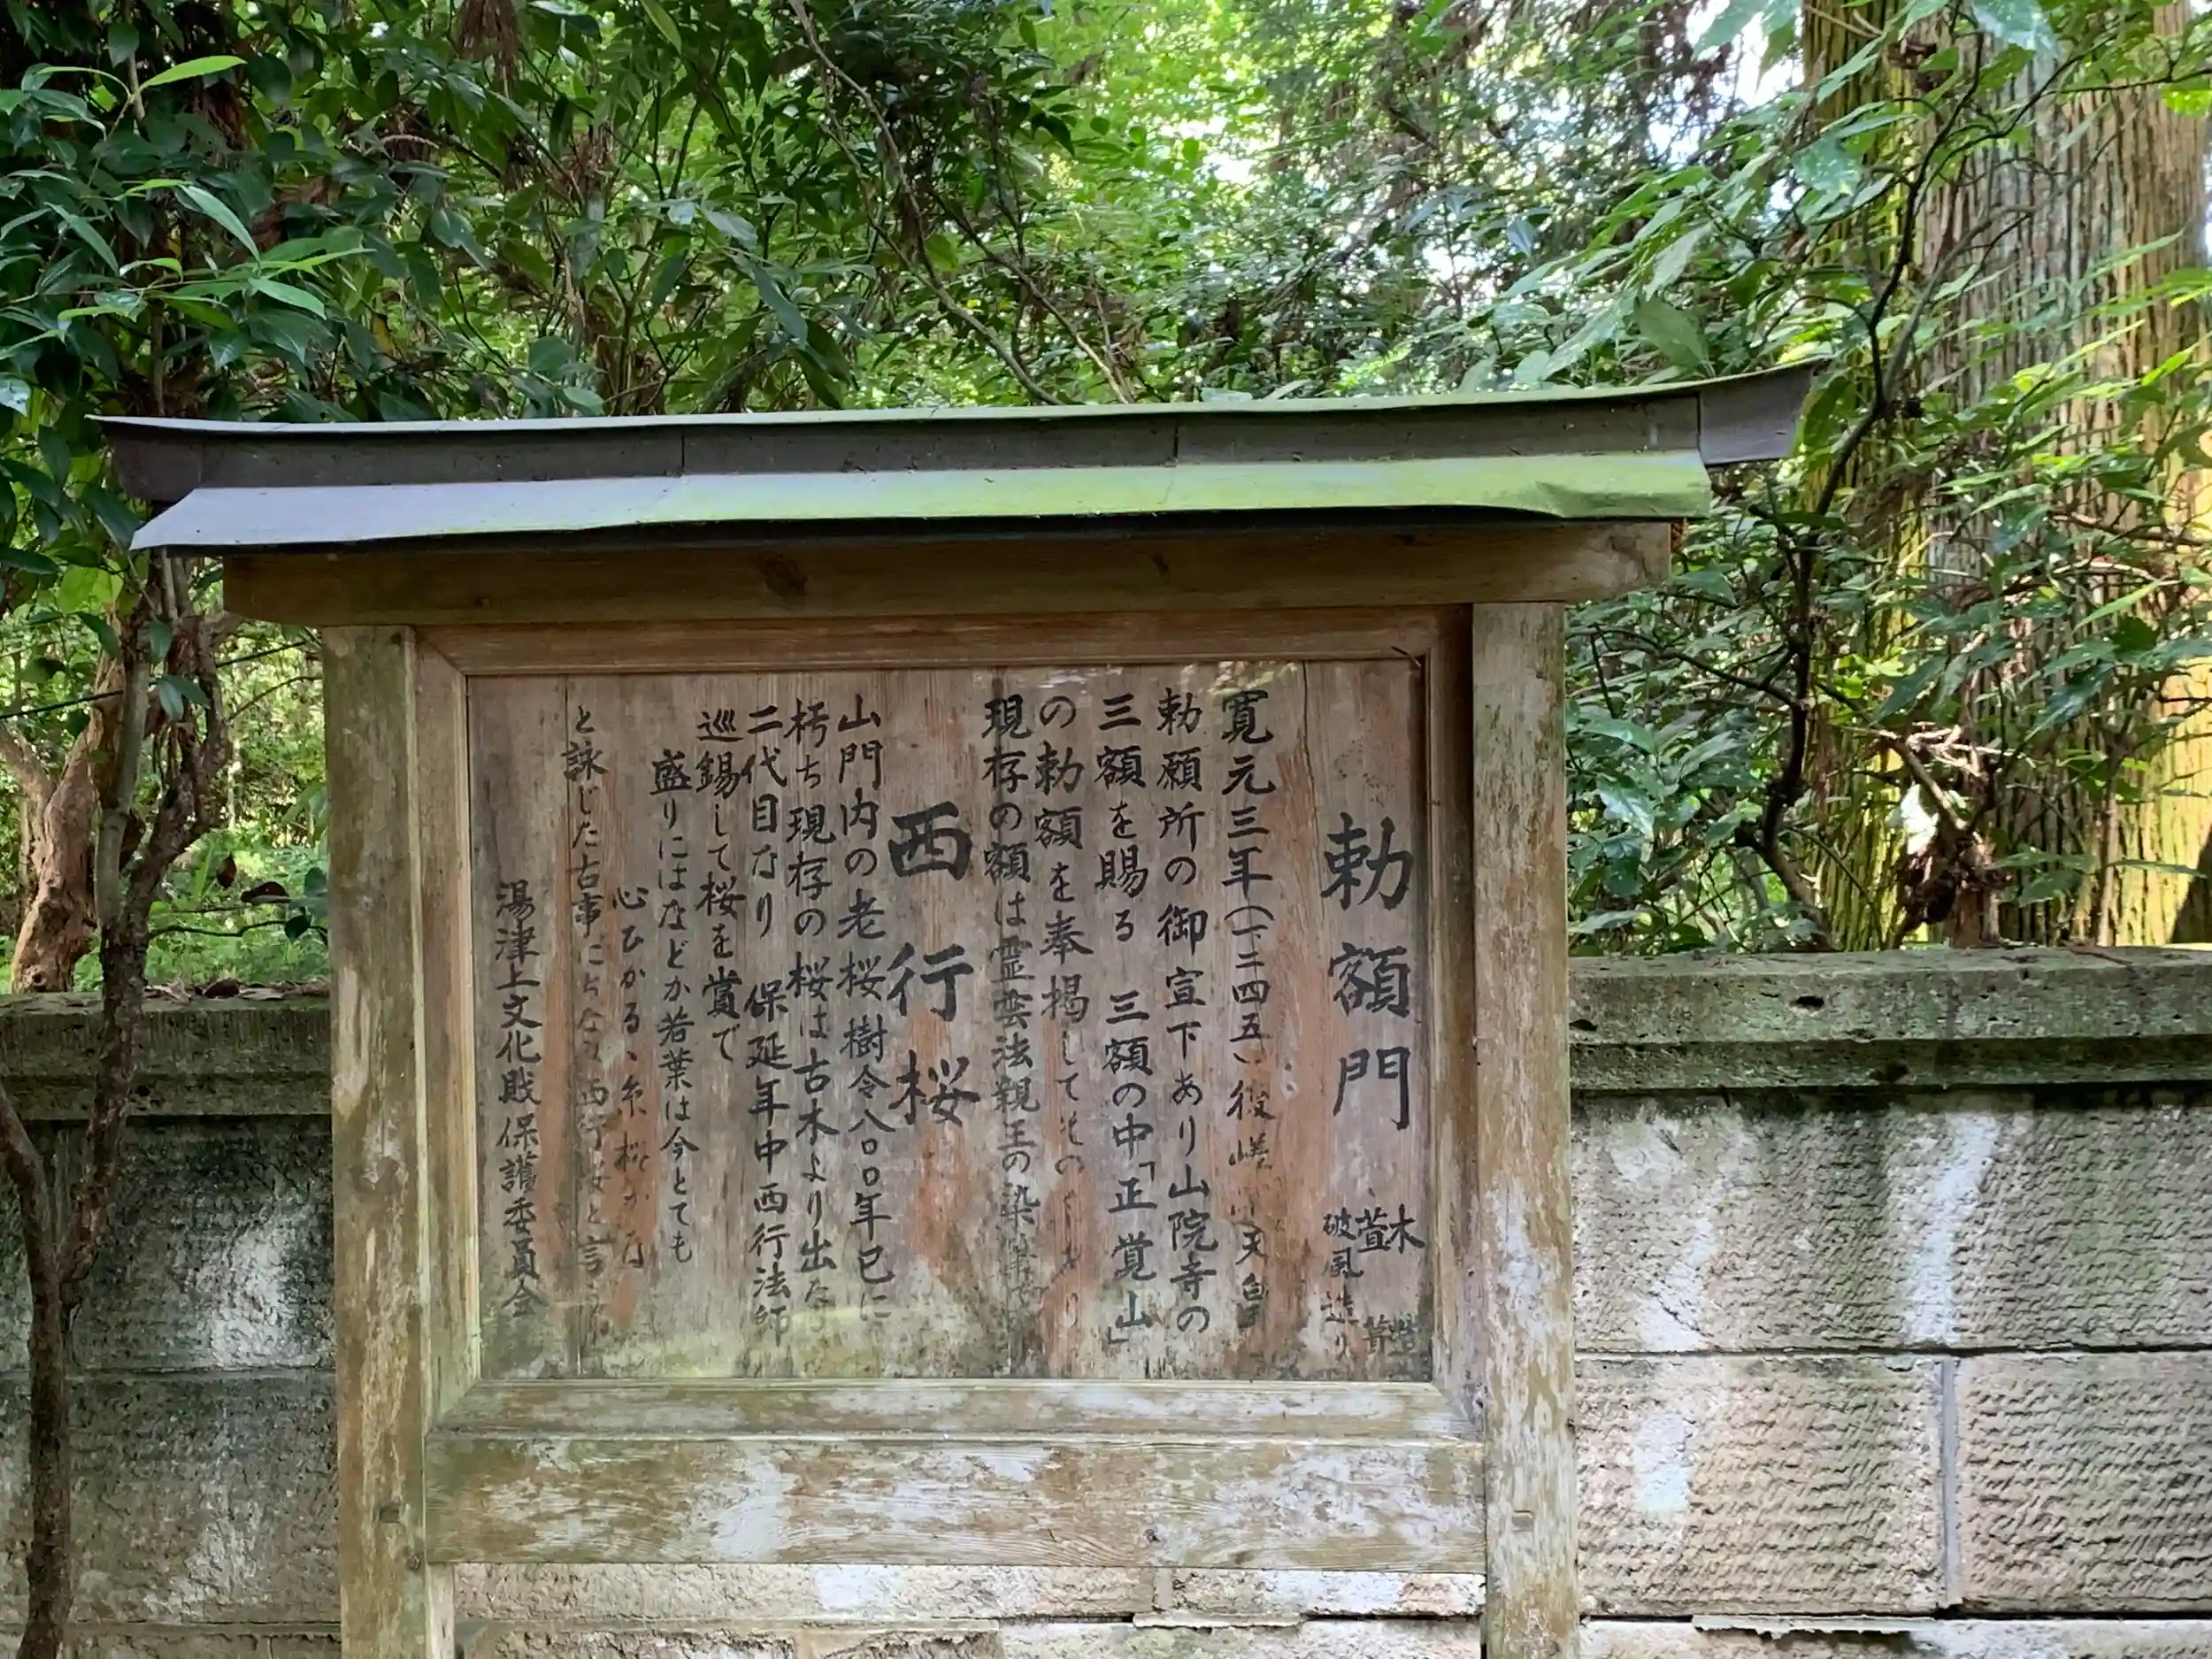 勅額門
木
萱
破風造り
寛元三年(一二四五)後嵯 天皇
勅願所の御宣下あり山院寺の
三額を賜る 三額の中「正覚山」
の勅額を奉掲してその
現存の額は霊雲法親王の染筆
西行桜
山門内の老桜樹令八〇〇年已に
朽ち現存の桜は古木より出た
二代目なり 保延年中西行法師
巡錫して桜を賞で
盛りにはなどか若葉は今とても
心ひかるゝ糸桜かな
と詠じた古事にちなみ西行桜と言
湯津上文化財保護委員会